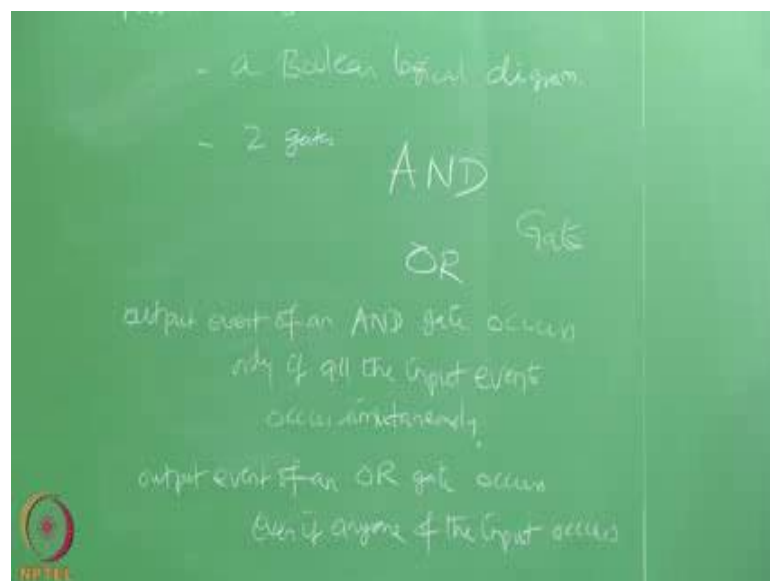 - a Boolean logical diagram
- 2 gates
AND
Gate
OR
output event of an AND gate occurs
only if all the input event
occur simultaneously.
output event of an OR gate occurs
even if anyone of the input occurs
NPTEL